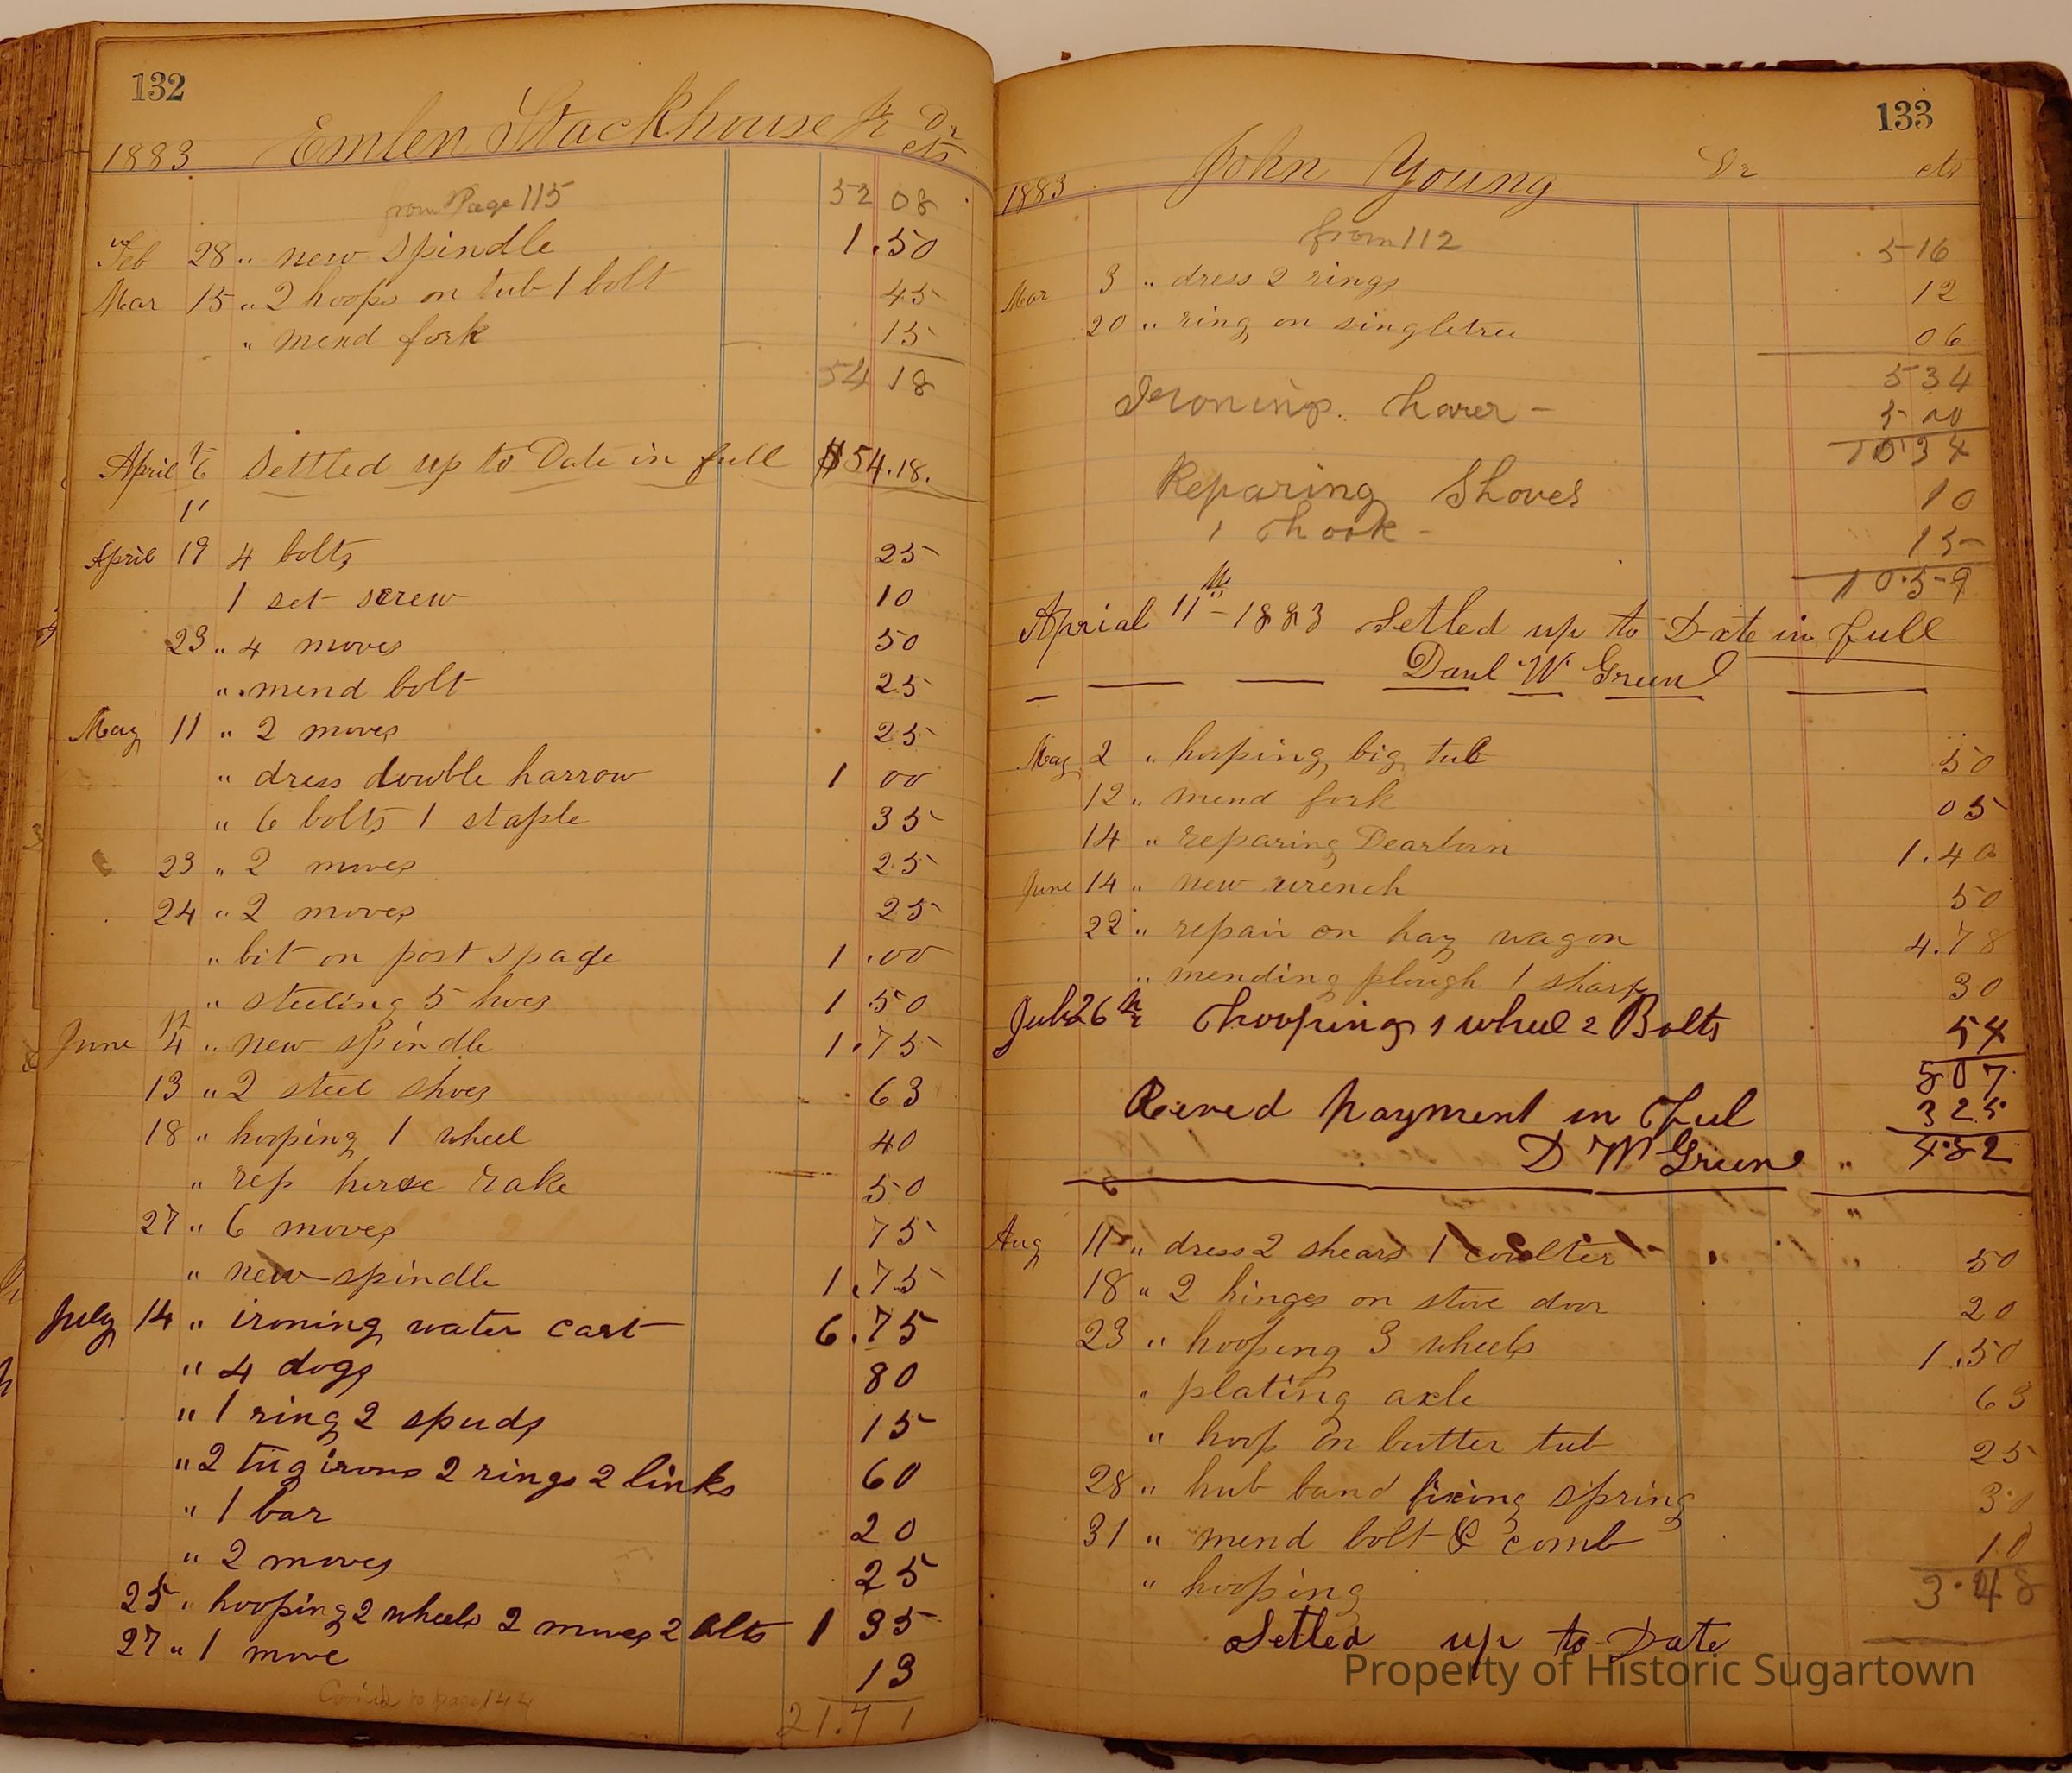 132
1883 Emlen Stackhouse Jr Dr cts
from Page 115 52 08
Feb 28 " new spindle 1.50
Mar 15 " 2 hoops on tub 1 bolt 45
" mend fork 15
54 18
April 6 Settled up to Date in full $54.18.
April 19 4 bolts 25
1 set screw 10
23 " 4 moves 50
" mend bolt 25
May 11 " 2 moves 25
" dress double harrow 1 00
" 6 bolts 1 staple 35
23 " 2 moves 25
24 " 2 moves 25
" bit on post spade 1.00
" steeling 5 hoes 1 50
June 4 " new spindle 1.75
13 " 2 steel shoes 63
18 " hooping 1 wheel 40
" rep horse rake 50
27 " 6 moves 75
" new spindle 1.75
July 14 " ironing water cart 6.75
" 4 dogs 80
" 1 ring 2 spuds 15
" 2 tug irons 2 rings 2 links 60
" 1 bar 20
" 2 moves 25
25 " hooping 2 wheels 2 moves 2 bolts 1 35
27 " 1 move 13
to page 144
21.71
133
1883 John Young Dr cts
from 112 5 16
Mar 3 " dress 2 rings 12
20 " ring on singletree 06
5 34
Ironing 5 00
10 34
Reparing Shoves 10
1 hook - 15
10.59
Aprial 11th - 1883 Setled up to Date in full
Danl W Green
May 2 " hooping big tub 50
12 " mend fork 05
14 " reparing Dearborn 1.40
June 14 " new wrench 50
22 " repair on hay wagon 4.78
" mending plough 1 sharp 30
July 26th hooping 1 wheel 2 Bolts 54
8 07
3 25
Receved payment in Ful
D W Green " 4.82
Aug 11 " dress 2 shears 1 coulter 50
18 " 2 hinges on stove door 20
23 " hooping 3 wheels 1.50
" plating axle 63
" hoop on butter tub 25
28 " hub band fixing spring 30
31 " mend bolt & comb 10
" hooping 3.48
Setled up to Date
Property of Historic Sugartown